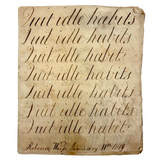 Quit idle habits
Quit idle habits
Quit idle habit.
Quit idle habits
Quit idle habits
Quit idle habits
Quit idle habits
Rebecca January 11th